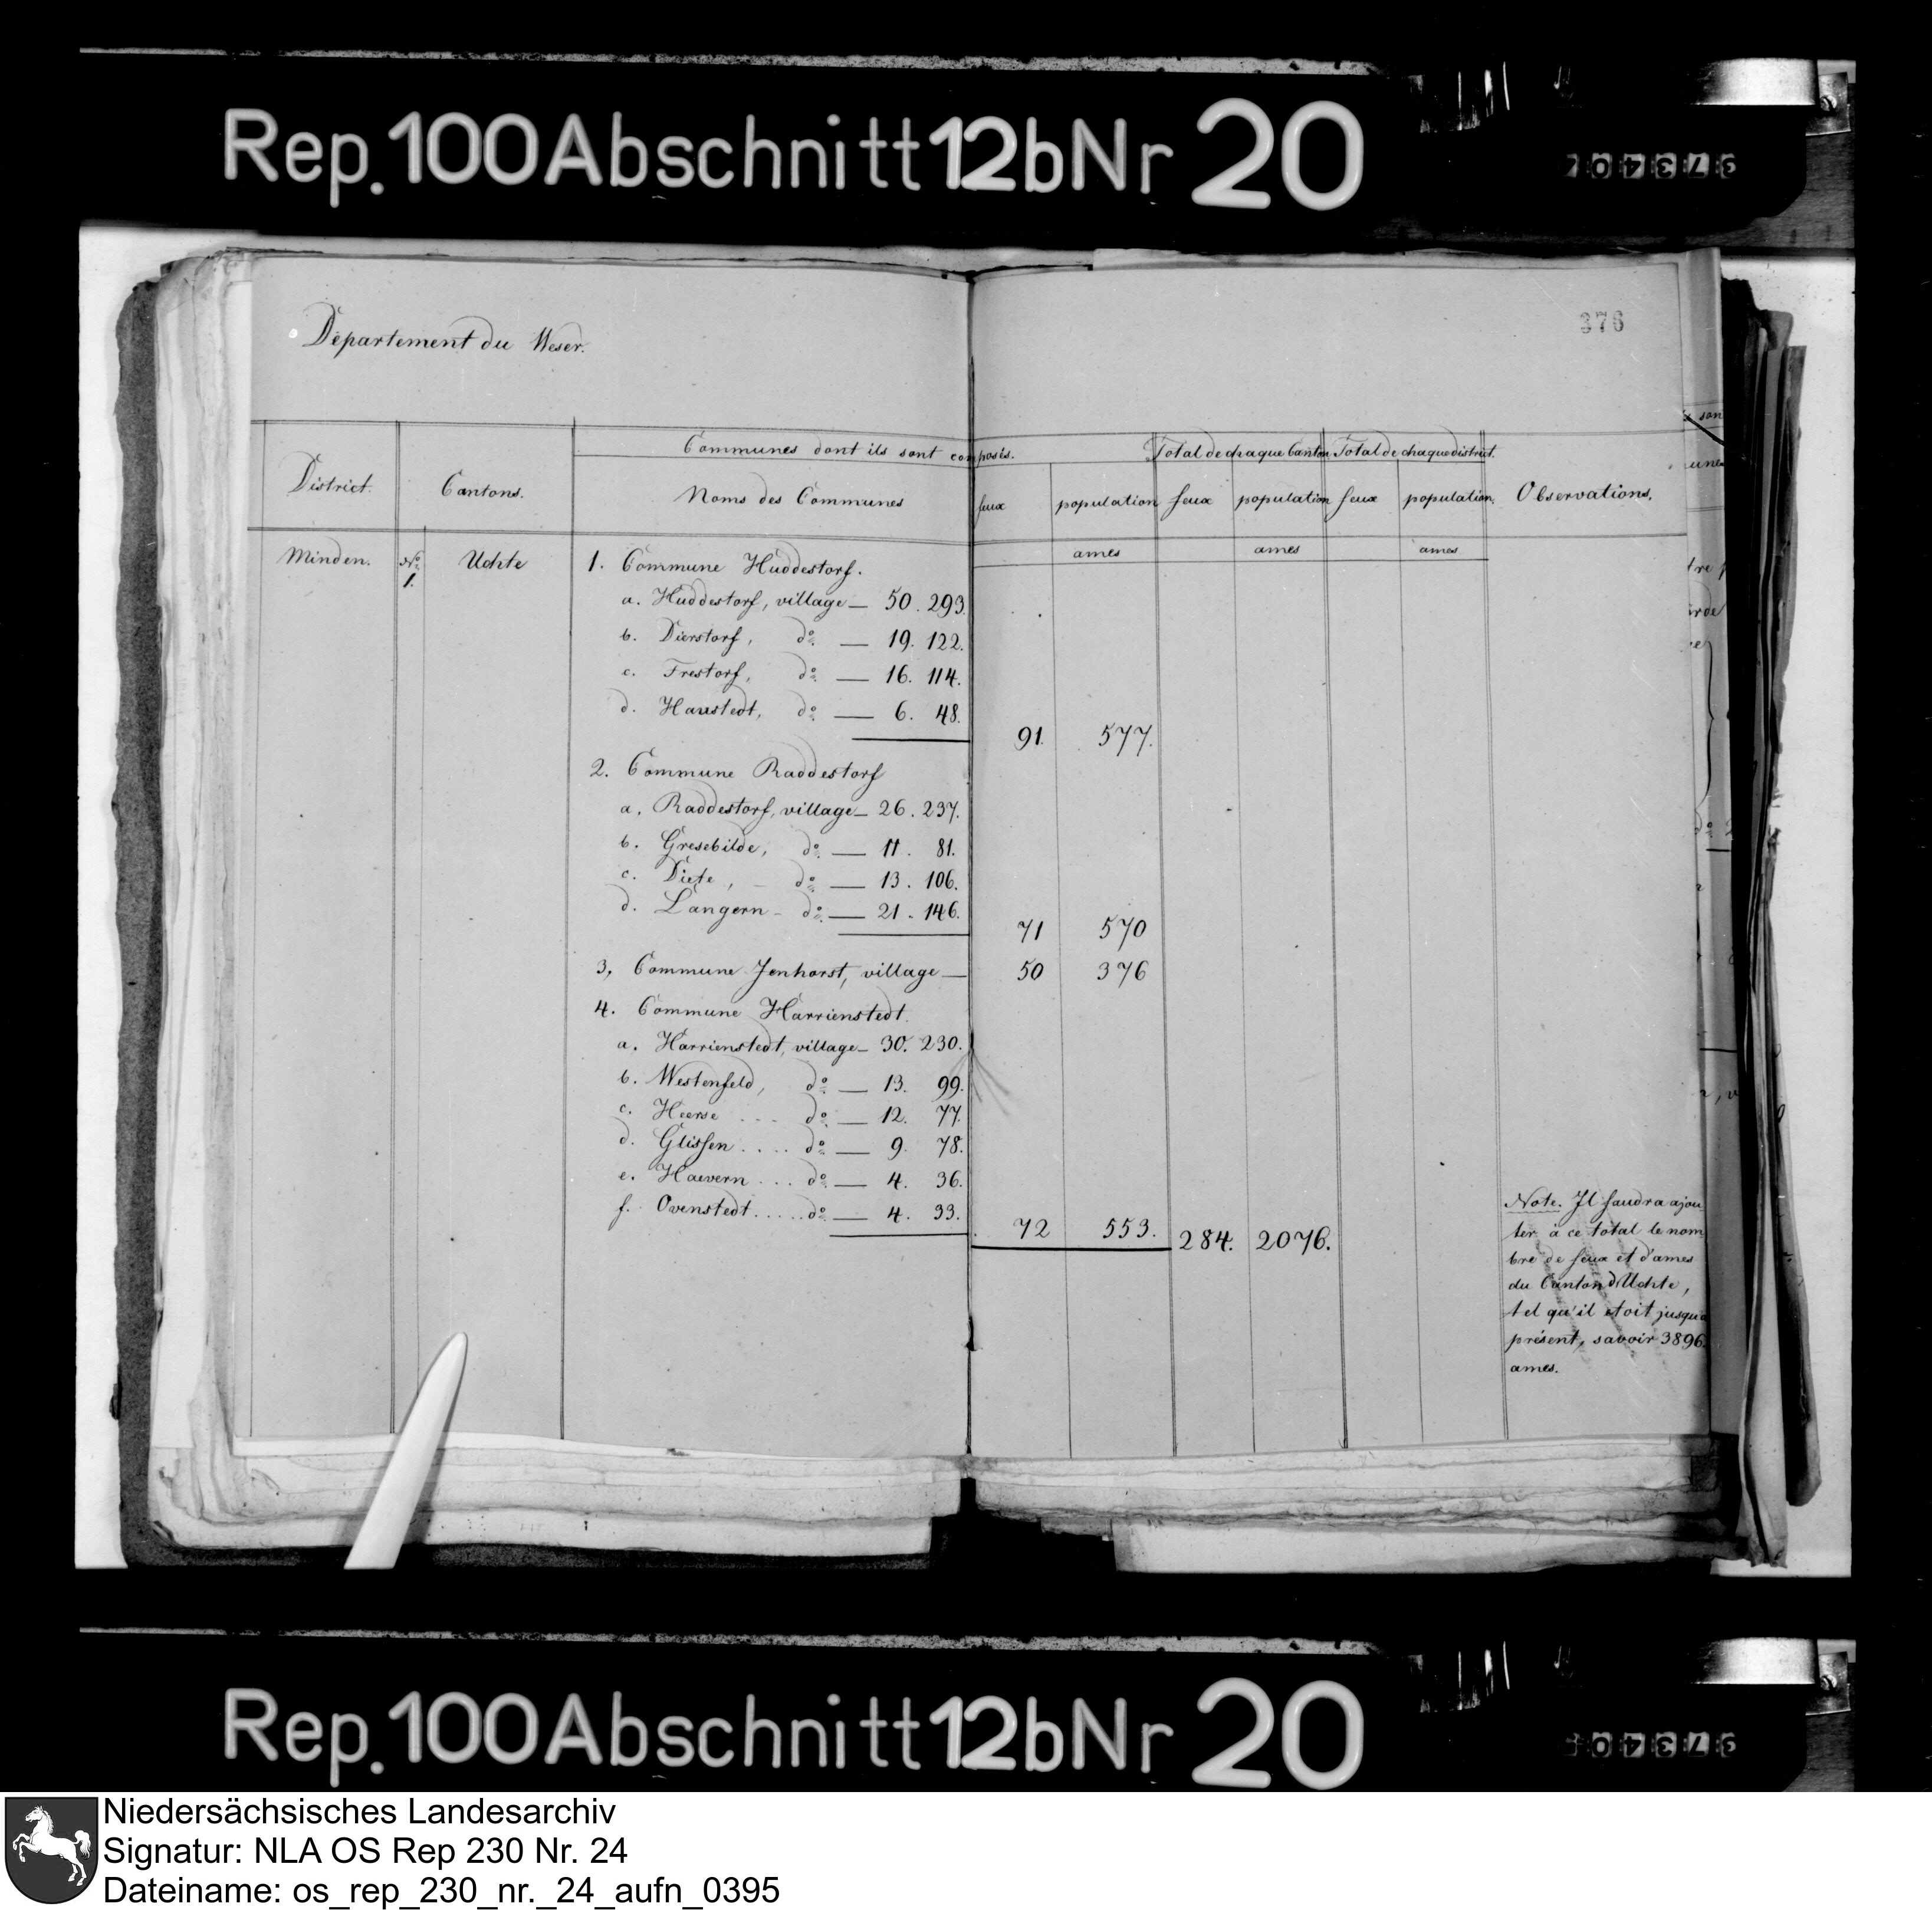 Rep. 100 Abschnitt 12b Nr 20
376
Département du Weser.
District. Cantons. Communes dont ils sont composés. Total de chaque Canton Total de chaque district. Observations.
Noms des Communes feux population feux population feux population.
ames ames ames
Minden. No. 1. Uchte 1. Commune Huddestorf.
a. Huddestorf, village — 50. 293.
b. Dierstorf, do. — 19. 122.
c. Frestorf, do. — 16. 114.
d. Harrstedt, do. — 6. 48.
91. 577.
2. Commune Raddestorf
a. Raddestorf, village — 26. 237.
b. Gresebilde, do. — 11. 81.
c. Diete, — do. — 13. 106.
d. Langern — do. — 21. 146.
71 570
3, Commune Jenhorst, village — 50 376
4. Commune Harrienstedt.
a. Harrienstedt, village — 30. 230.
b. Westenfeld, do. — 13. 99.
c. Heerse ... do. — 12. 77.
d. Glissen .... do. — 9. 78.
e. Haevern ... do. — 4. 36.
f. Ovenstedt ..... do. — 4. 33.
72 553. 284. 2076.
Note. Il faudra ajou
ter à ce total le nom
bre de feux et d'ames
du Canton d'Uchte,
tel qu'il etoit jusqu'a
présent, savoir 3896
ames.
Rep. 100 Abschnitt 12b Nr 20
Niedersächsisches Landesarchiv
Signatur: NLA OS Rep 230 Nr. 24
Dateiname: os_rep_230_nr._24_aufn_0395